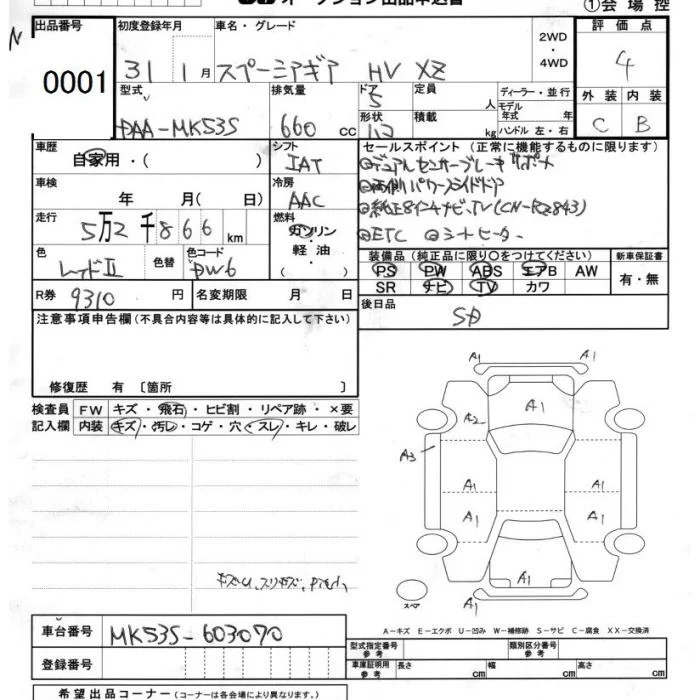 オークション出品申込書
①会場控
出品番号
0001
初度登録年月
31 1月
車名・グレード
スペーシアギア HV XZ
2WD
・
4WD
評価点
4
外装 内装
C B
型式
DAA-MK53S
排気量
660 cc
ドア
5
形状
定員
人
積載
kg
ディーラー・並行
モデル
年式 年
ハンドル 左・右
車歴
自家用・( )
シフト
IAT
車検
年 月( 日)
冷房
AAC
走行
5万2千866km
燃料
ガソリン
・
軽油
色
色替
色コード
PW6
R券 9310円
名変期限 月 日
セールスポイント (正常に機能するものに限ります)
◎デュアルセンサーブレーキサポート
◎両側パワースライドドア
◎純正8インチナビ、TV(CN-RZ843)
◎ETC ◎シートヒーター
装備品 (純正品に限り○をつけてください)
新車保証書
PS PW ABS エアB AW
SR ナビ TV カワ
有・無
後日品
注意事項申告欄(不具合内容等は具体的に記入して下さい)
修復歴 有 〔箇所 〕
検査員
記入欄
FW キズ・飛石・ヒビ割・リペア跡・×要
内装 キズ・汚レ・コゲ・穴・スレ・キレ・破レ
A1 A1
A1
A2
A3
A1 A1
A1 A1
A1
A1
スペア
A-キズ E-エクボ U-凹み W-補修跡 S-サビ C-腐食 XX-交換済
車台番号 MK53S-603070
登録番号
型式指定番号
参考
類別区分番号
参考
車庫証明用
参考
長さ cm 幅 cm 高さ cm
希望出品コーナー (コーナーは各会場により異なります。)